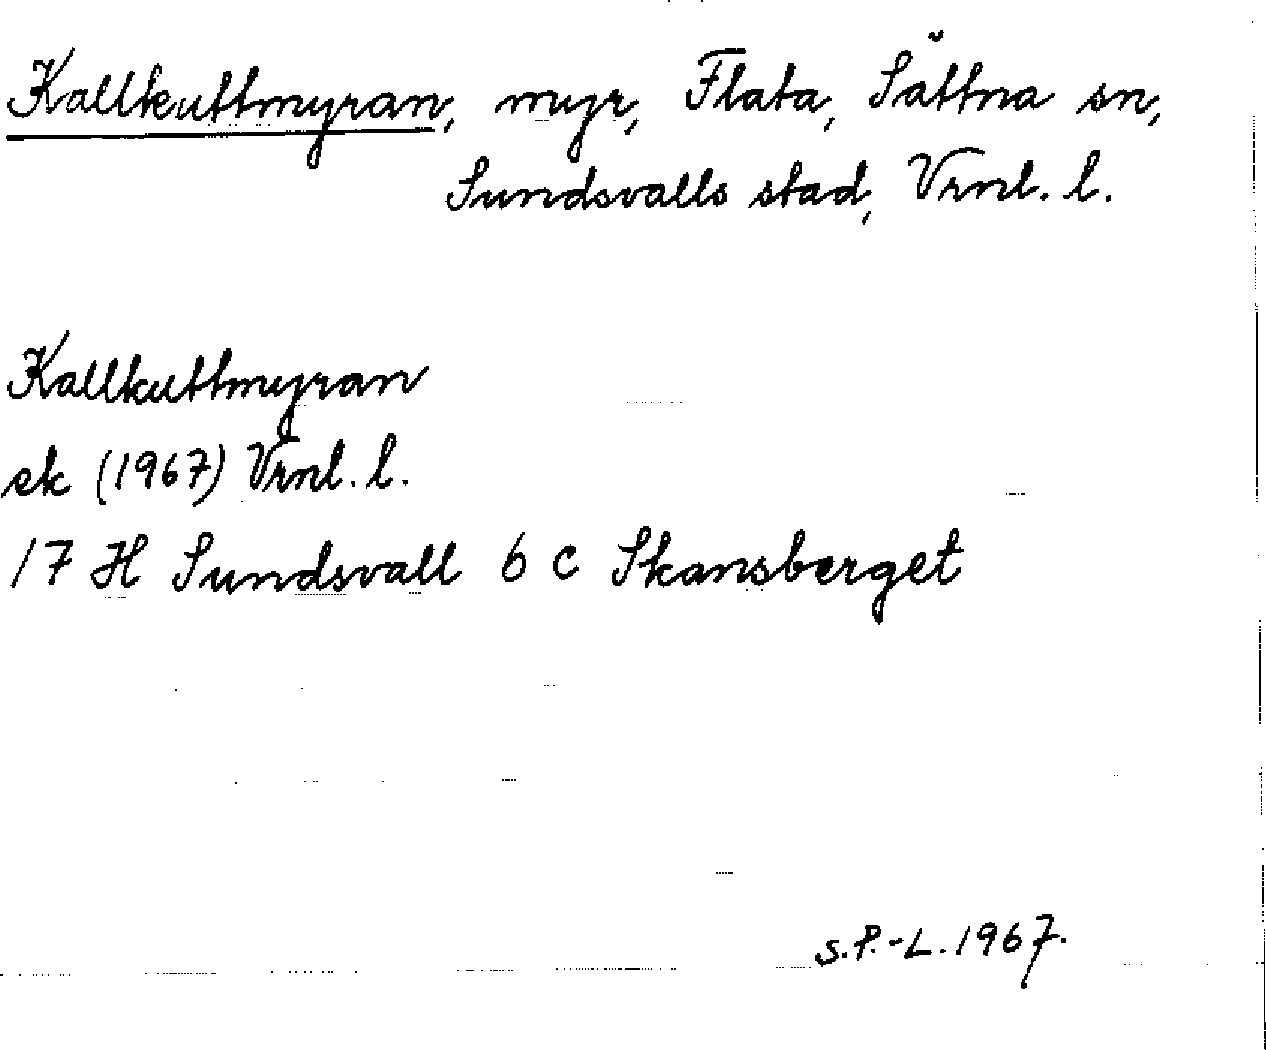 Kallkuttmyran, myr, Flata, Sättna sn,
Sundsvalls stad, Vrnl. l.
Kallkuttmyran
ek (1967) Vrnl. l.
17 H Sundsvall 6 c Skansberget
S.P.-L. 1967.